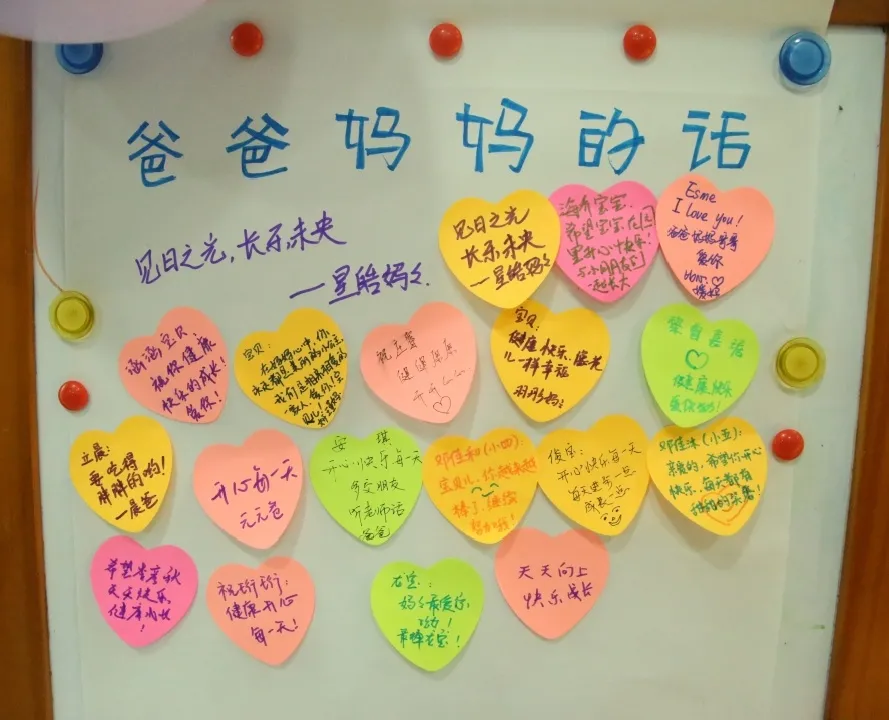 爸爸妈妈的话
见日之光,长乐未央
—星皓妈妈.
见日之光
长乐未央
—星皓妈妈
希望宝宝在园
里开心快乐!
与小朋友们
一起长大
Esme
I love you!
爸爸妈妈哥哥
爱你
涵涵宝贝,
祝你健康
快乐的成长!
爱你!
宝贝:
在妈妈心中,你
永远都是最
我们是相亲相爱的
家人.爱你!宝
贝!
祝
健健康康
开开心心
宝贝:
健康、快乐、像花
儿一样幸福
健康快乐
立晨:
要吃得
胖胖的哟!
—晨爸
开心每一天
元元爸
安琪
开心快乐每一天
多交朋友
听老师话
爸爸
邓佳和(小四):
宝贝儿,你越来越
棒了,继续
努力哦!
俊
开心快乐每一天
每天进步一点
成长一点
邓佳沐(小五):
亲爱的,希望你开心
快乐,每天都有
甜甜的笑容!
希望
天天快乐
健康成长
!
祝珩珩:
健康开心
每一天!
右宝:
妈妈最爱你
哟!
最棒右宝!
天天向上
快乐成长